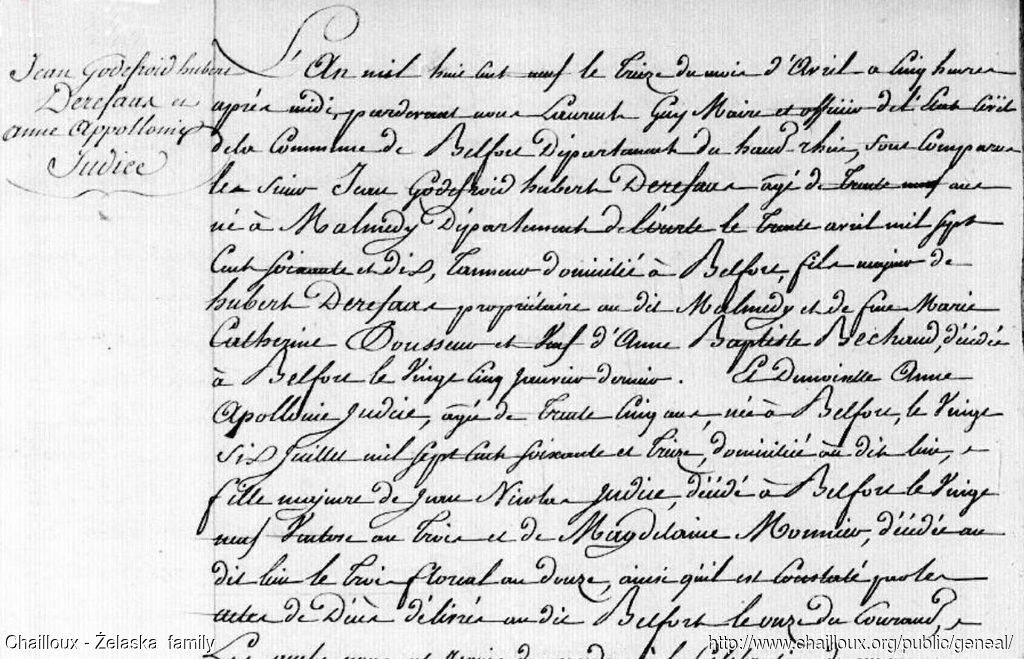 Jean Godefroid hubert
Derefaux et
anne Appollonie
Judice
L'An mil huit cent neuf le Treize du mois d'Avril a Cinq heures
après midi, pardevant nous Laurent Guy Maire et officier de l'Etat Civil
dela Commune de Belfort Département du haud-rhin, sont Comparus
les Sieur Jean Godefroid hubert Derefaux âgé de Trente neuf ans
né à Malmedy Département de l'ourte le Trente avril mil Sept
Cent Soixante et dix, Tanneur domicilié à Belfort, fils majeur de
hubert Derefaux propriétaire au dit Malmedy et de feue Marie
Catherine Dousseur et Veuf d'Anne Baptiste Bechaud, décédée
à Belfort le Vingt Cinq Janvier dernier. Et Demoiselle Anne
Apollonie Judice, âgée de Trente Cinq ans, née à Belfort, le Vingt
Six Juillet mil Sept Cent Soixante et Treize, domiciliée au dit lieu,
fille majeure de Nicolas Judice, décédé à Belfort le Vingt
neuf Ventose an Trois et de Magdelaine Monnier, décédée au
dit lieu le Trois floreal an douze, ainsi qu'il est Constaté par les
actes de Décès délivrés au dit Belfort le onze du Courant,
Chailloux - Żelaska family
http://www.chailloux.org/public/geneal/